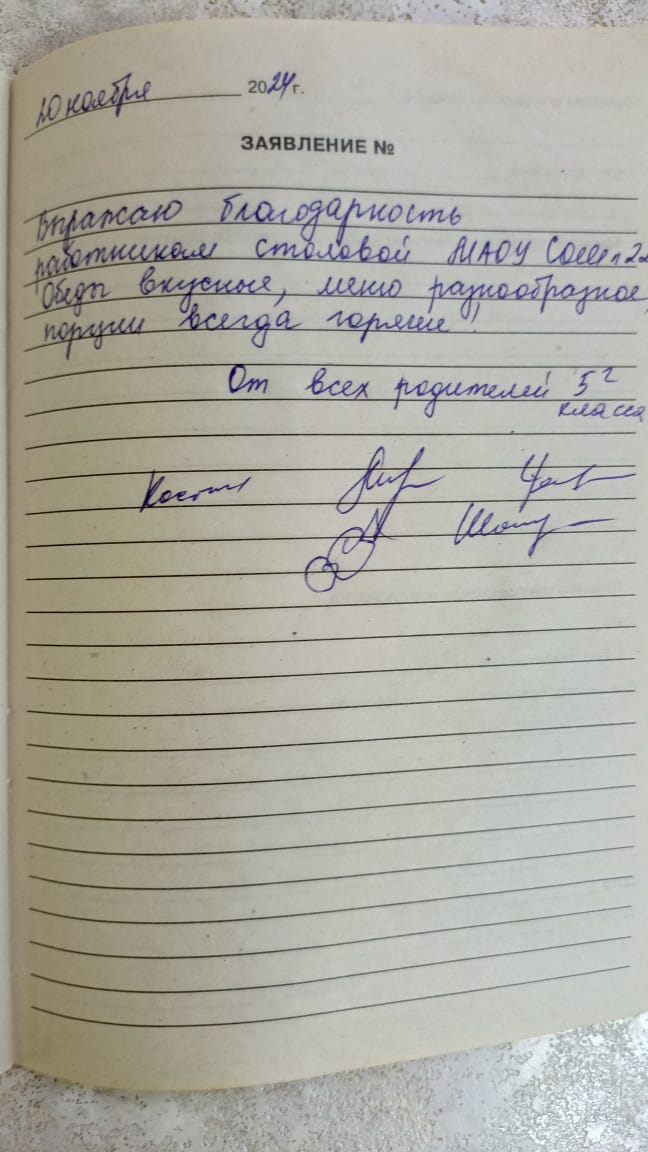 20 ноября 2024 г.
ЗАЯВЛЕНИЕ №
Выражаю благодарность
работникам столовой МАОУ СОШ
Обеды вкусные, меню разнообразное,
порции всегда горячие!
От всех родителей 5г
класса